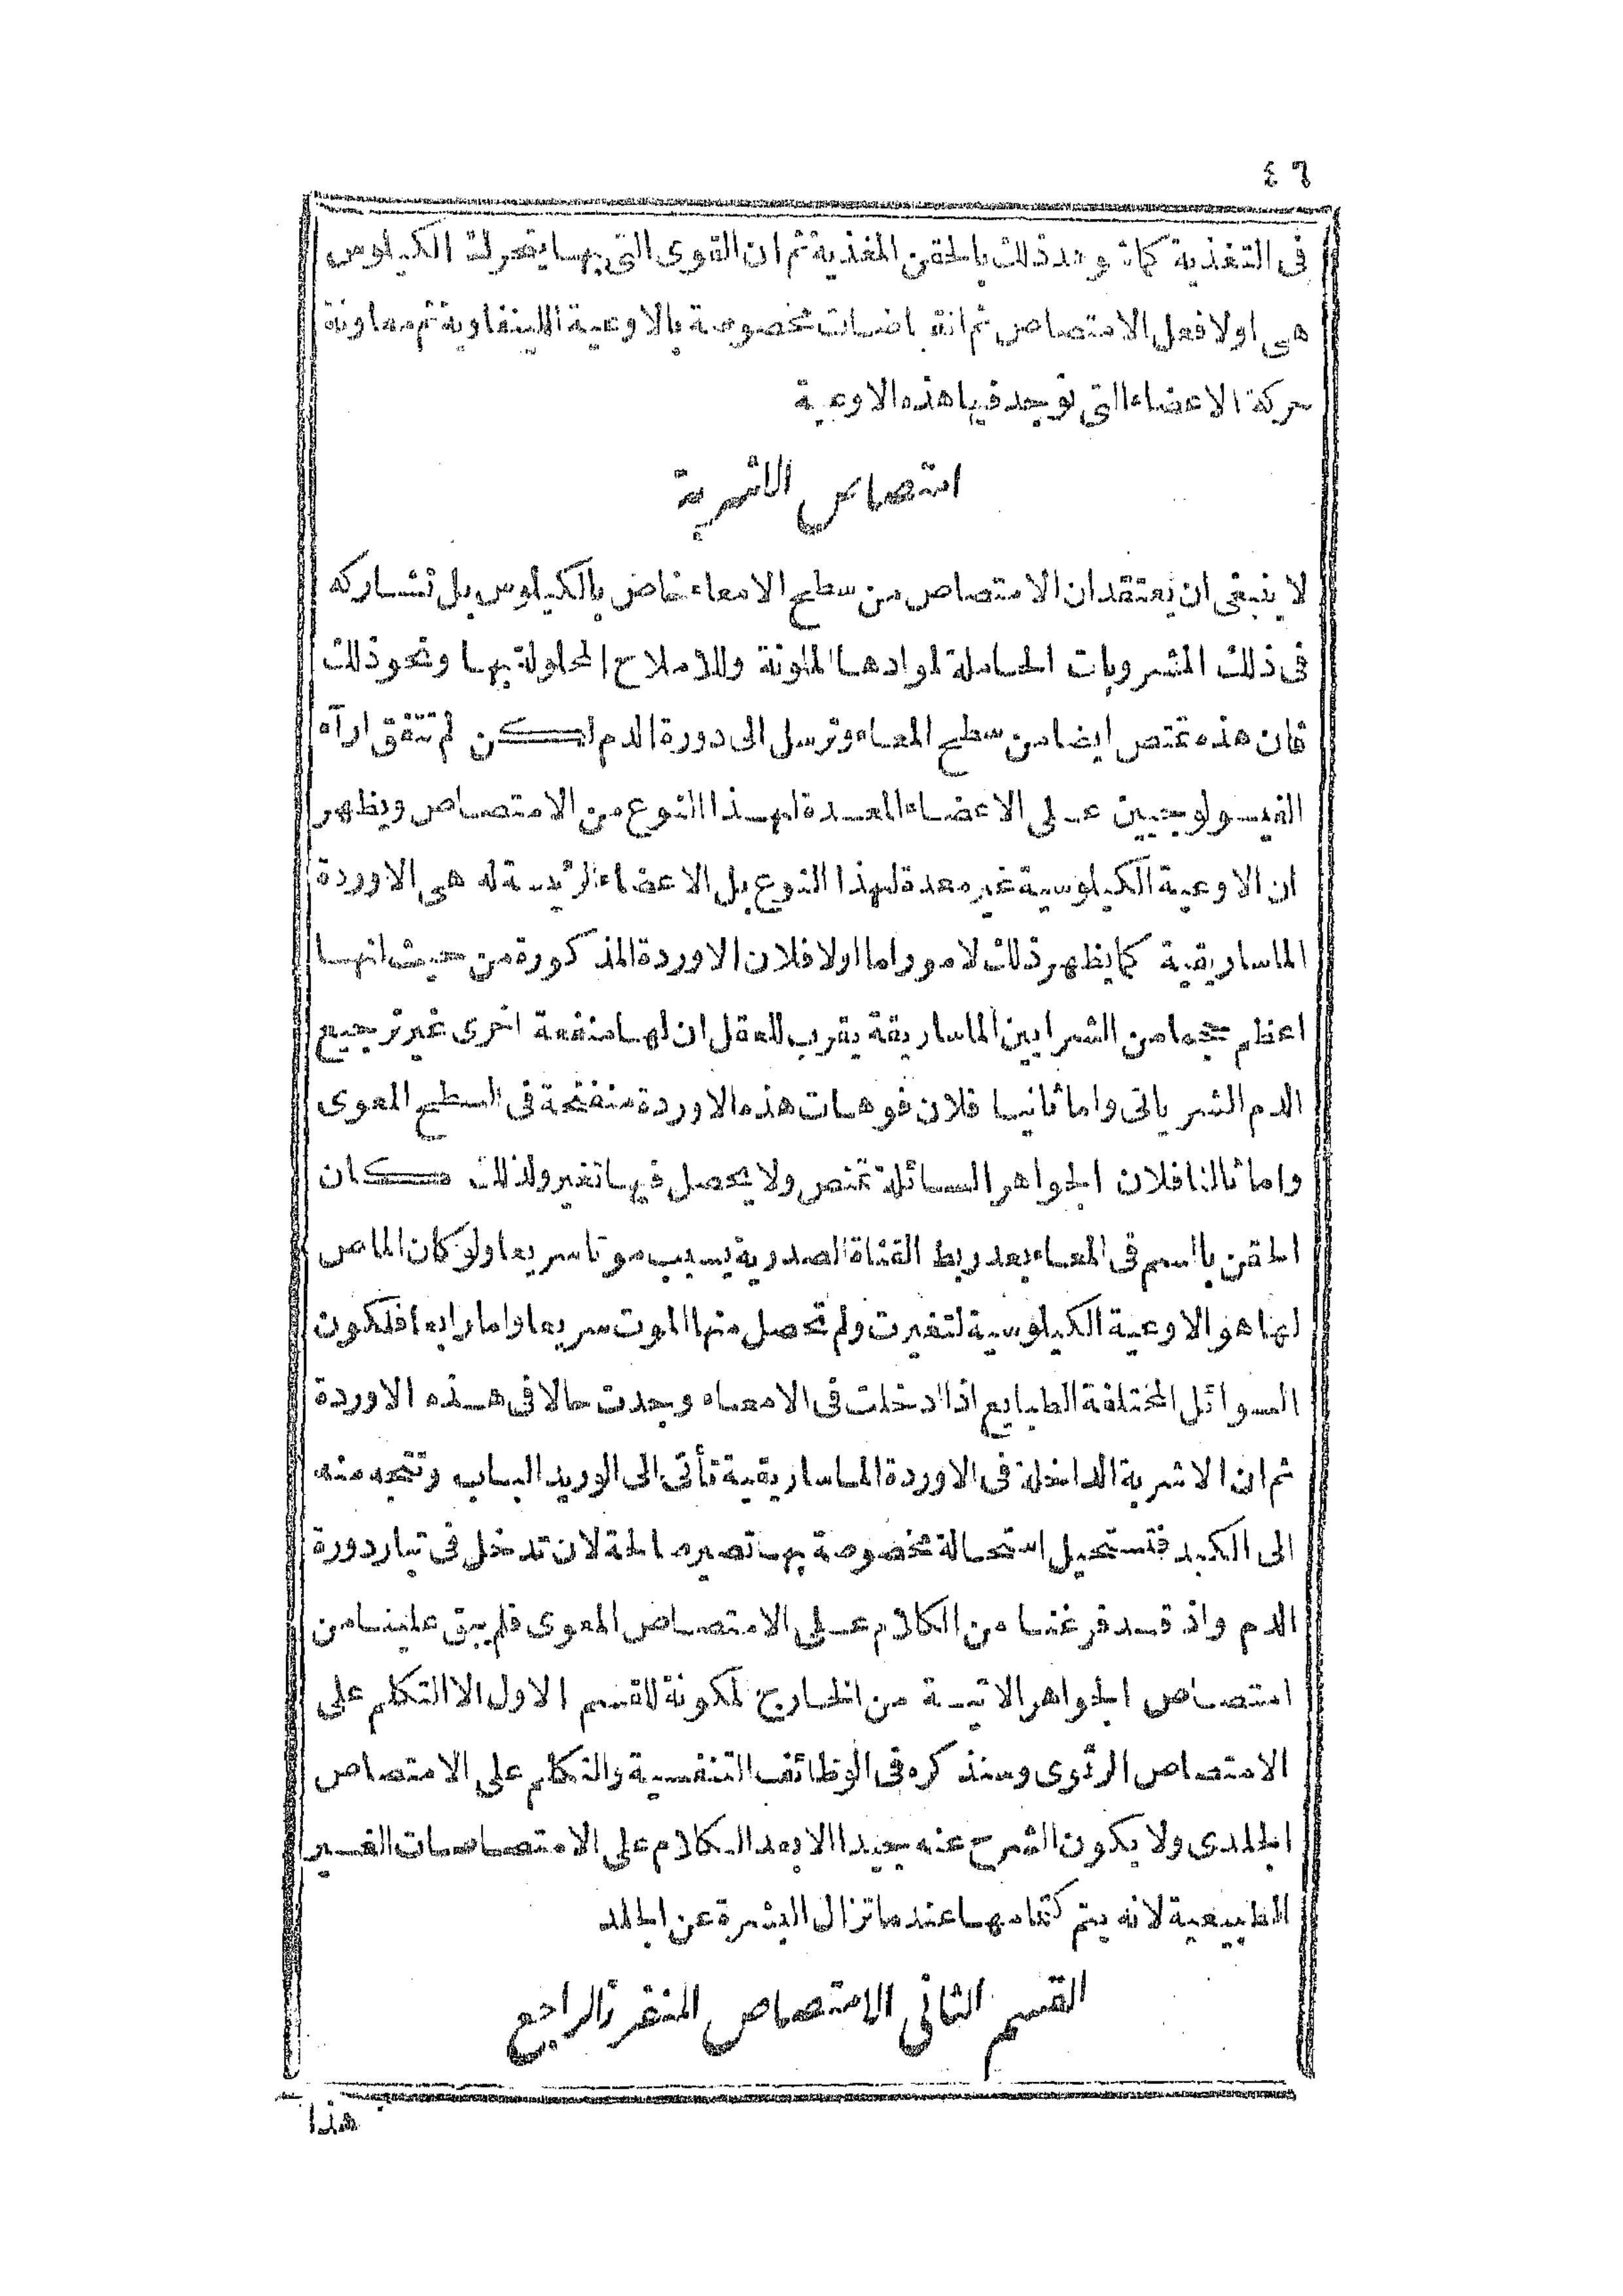 ٤٦
فى التغذية كما شوهد ذلك بالحقن المغذية ثم ان القوى التى بها يتحرك الكيلوس
هى اولا فعل الامتصاص ثم انقباضات مخصوصة بالاوعية اللينفاوية ثم معاونة
حركة الاعضاء التى توجد فيها هذه الاوعية
امتصاص الاشربة
لا ينبغى ان يعتقد ان الامتصاص من سطح الامعاء خاص بالكيلوس بل تشاركه
فى ذلك المشروبات الحاملة لموادها الملونة وللاملاح المحلولة بها ونحو ذلك
فان هذه تمتص ايضا من سطح المعاء وترسل الى دورة الدم لكن لم تتفق ارآء
الفيسولوجيين على الاعضاء المعدة لهذا النوع من الامتصاص ويظهر
ان الاوعية الكيلوسية غير معدة لهذا النوع بل الاعضاء الرئيسة له هى الاوردة
الماساريقية كما يظهر ذلك لامور اما اولا فلان الاوردة المذكورة من حيث انها
اعظم حجما من الشرايين الماساريقة يقرب للعقل ان لها منفعة اخرى غير ترجيع
الدم الشريانى واما ثانيا فلان فوهات هذه الاوردة منفتحة فى السطح المعوى
واما ثالثا فلان الجواهر السائلة تمتص ولا يحصل فيها تغير ولذلك كان
الحقن بالسم فى المعاء بعد ربط القناة الصدرية يسبب موتا سريعا ولو كان الماص
لها هو الاوعية الكيلوسية لتغيرت ولم تحصل منها الموت سريعا واما رابعا فلكون
السوائل المختلفة الطبايع اذا ادخلت فى الامعاء وجدت حالا فى هذه الاوردة
ثم ان الاشربة الداخلة فى الاوردة الماساريقية تأتى الى الوريد الباب وتتجه منه
الى الكبد فتستحيل استحالة مخصوصة بها تصير صالحة لان تدخل فى تيار دورة
الدم واذ قد فرغنا من الكلام على الامتصاص المعوى فلم يبق علينا من
امتصاص الجواهر الاتية من الخارج المكونة للقسم الاول الا التكلم على
الامتصاص الرئوى وسنذكره فى الوظائف التنفسية والتكلم على الامتصاص
الجلدى ولا يكون الشرح عنه جيدا الا بعد الكلام على الامتصاصات الغير
الطبيعية لانه يتم كتمامها عند ما تزال البشرة عن الجلد
القسم الثانى الامتصاص الراجع
هذا